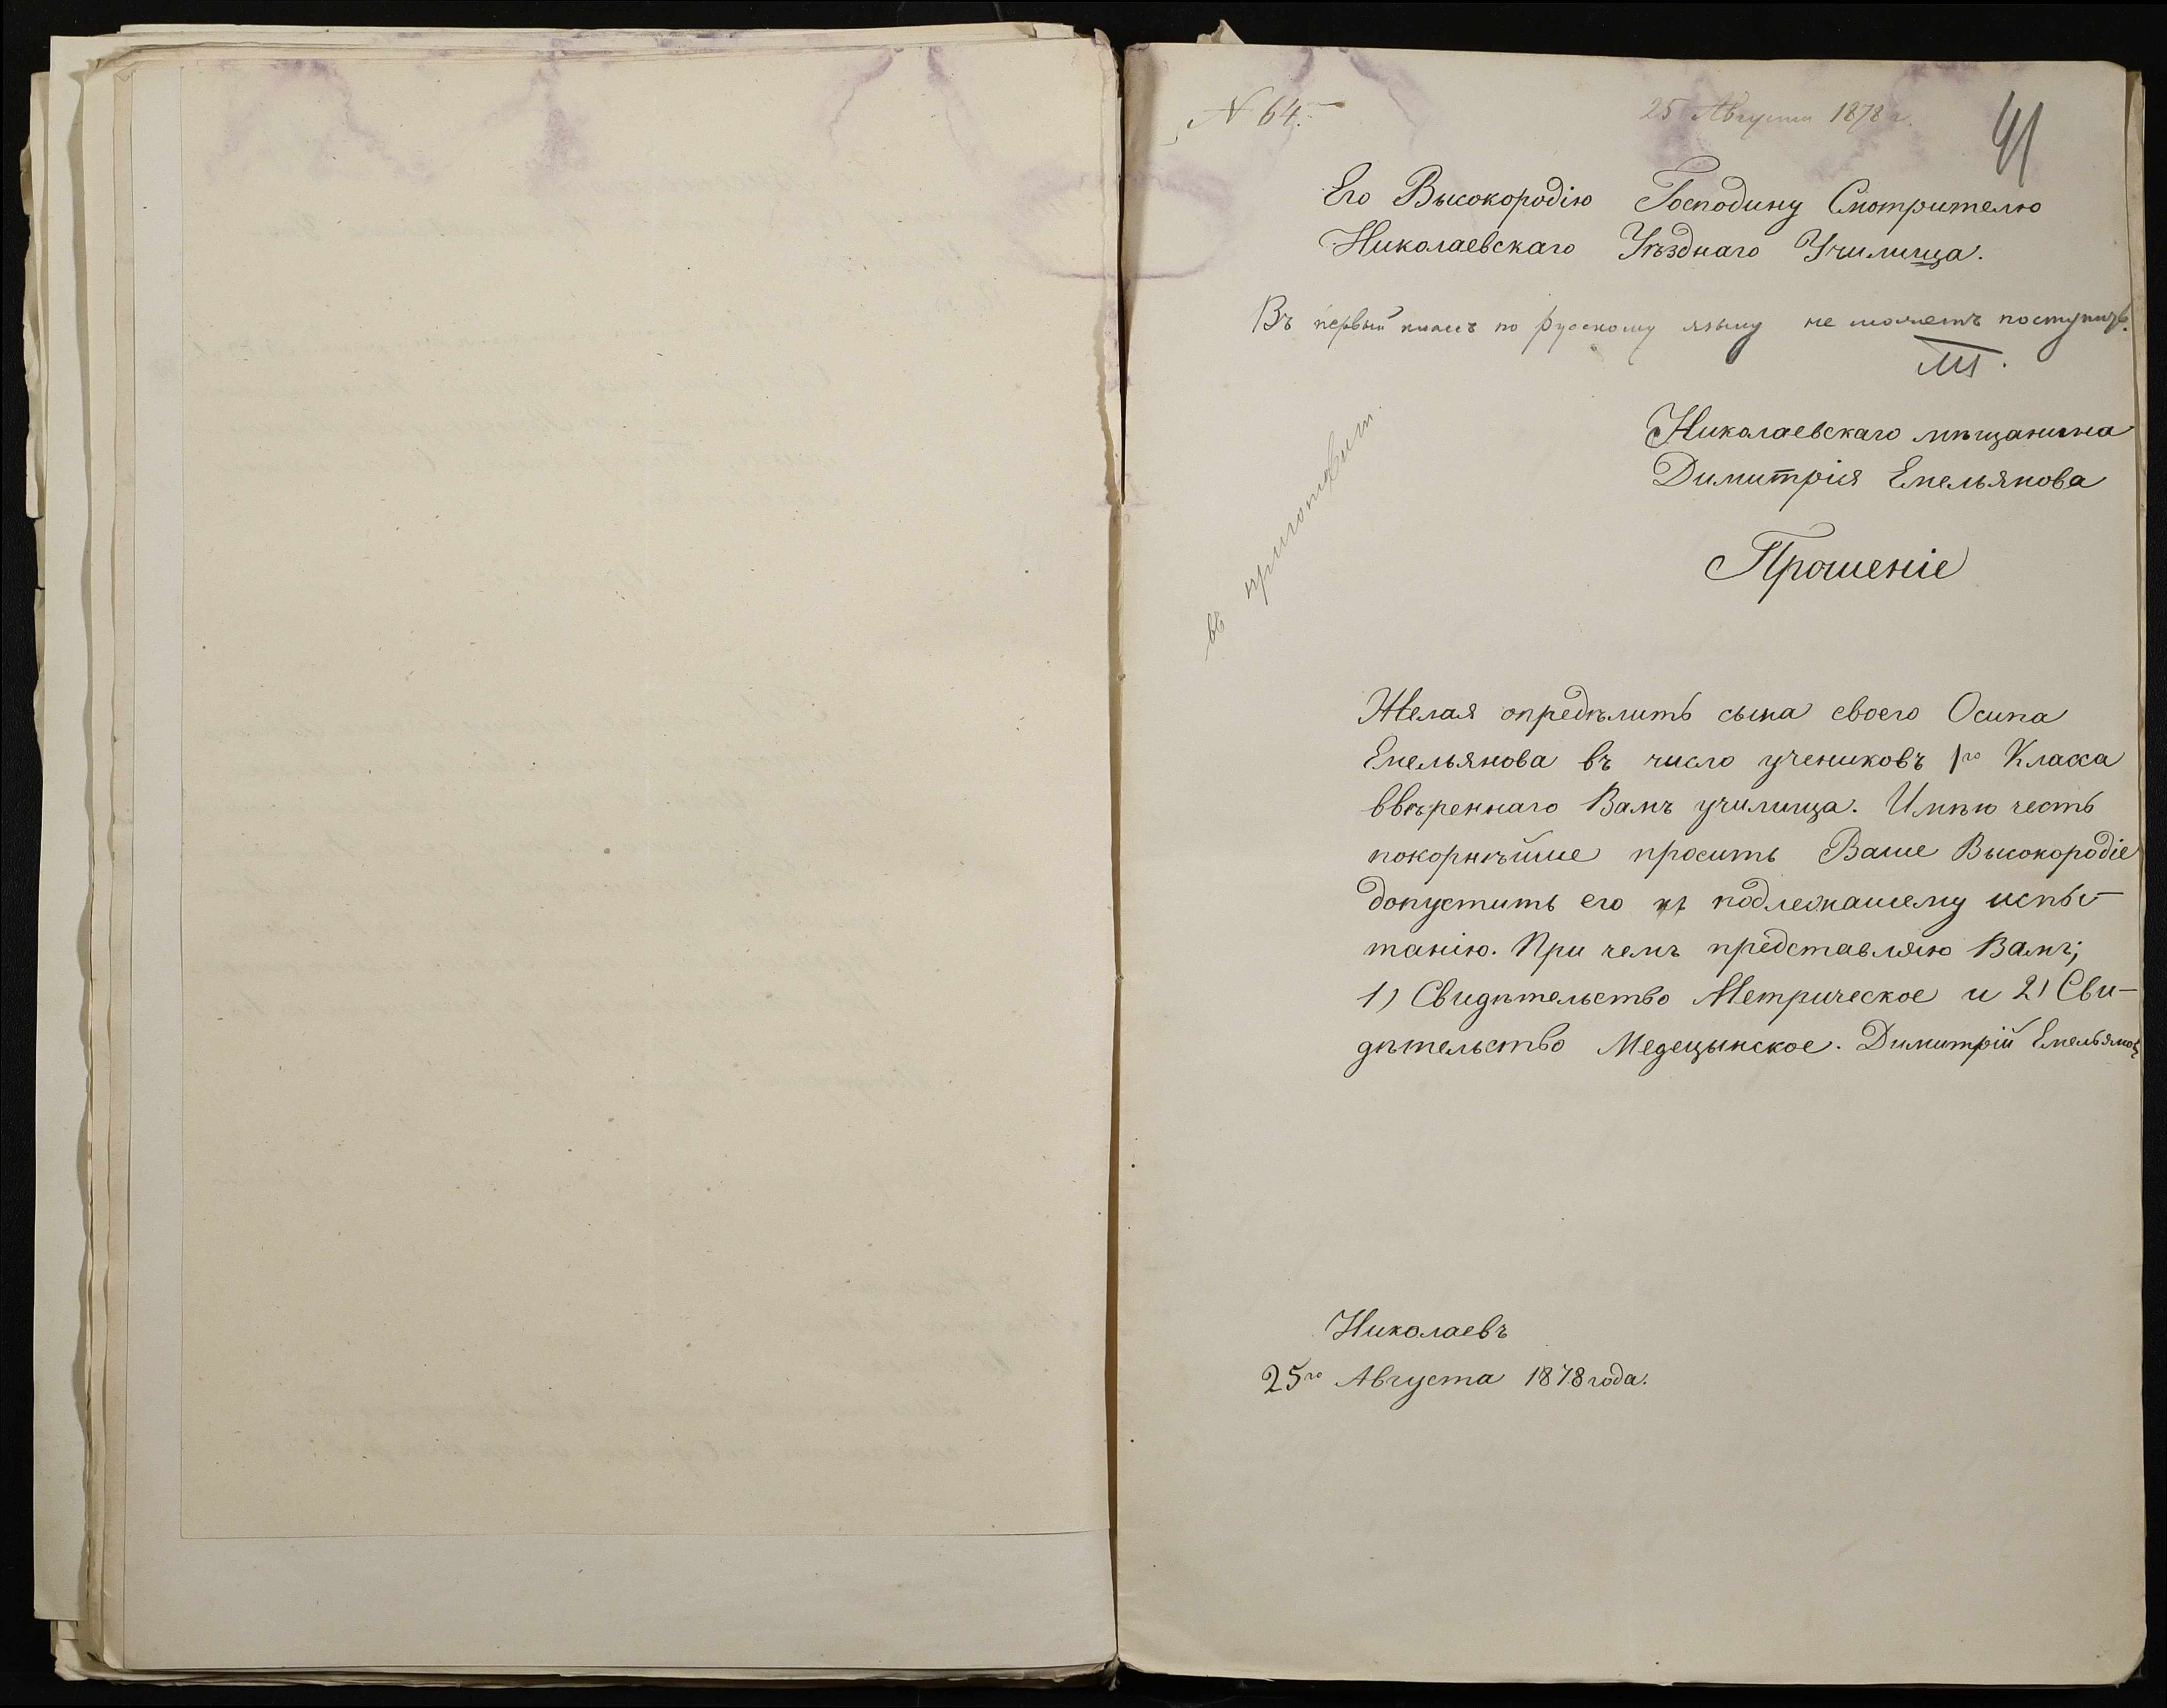 N 64.
25 Августа 1878 г.
41
Его Высокородію Господину Смотрителю
Николаевскаго Уѣзднаго Училища.
Въ первый классъ по русскому языку не можетъ поступить.
Николаевскаго мѣщанина
Димитрія Емельянова
Прошеніе
въ приготовит.
Желая опредѣлить сына своего Осипа
Емельянова въ число учениковъ 1го Класса
ввѣреннаго Вамъ училища. Имѣю честь
покорнѣйше просить Ваше Высокородіе
допустить его къ подлежашему испы-
танію. При чемъ представляю Вамъ;
1) Свидѣтельство Метрическое и 2) Сви-
дѣтельство Медецынское. Димитрій Емельяновъ
Николаевъ
25го Августа 1878 года.